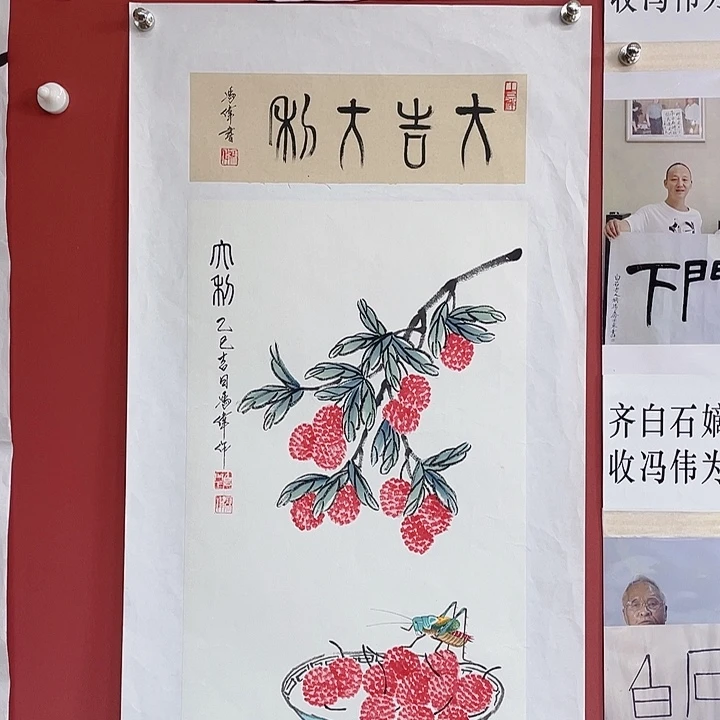 大吉大利
冯伟书
大利
乙巳吉日冯伟作
收冯伟为
門下
齐白石嫡
收冯伟为
白石